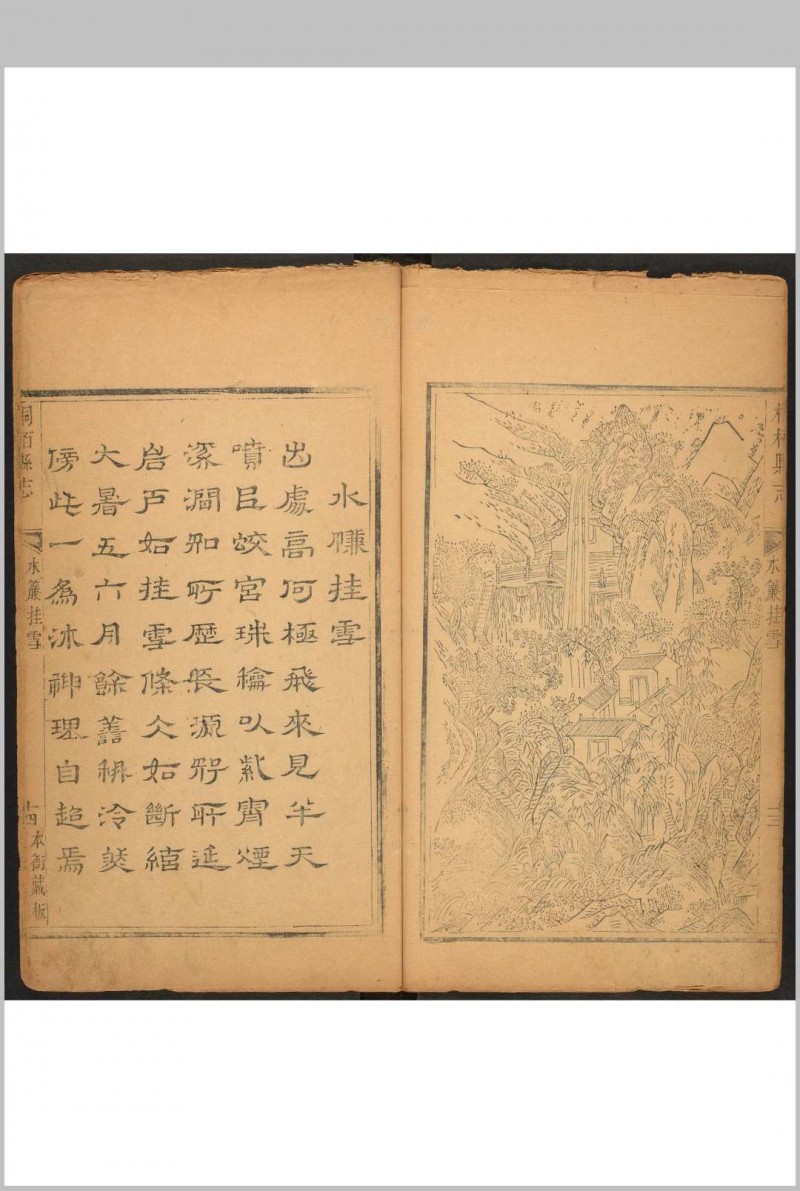 桐柏縣志
水簾挂雪
十三
水簾挂雪
出處高何極飛來見半天
噴㠯蛟宮珠以紫霄煙
深澗知所歷長源所延
岩戶如挂雪條仌如斷
大暑五六月餘善泠
傍此一為沐神理自超焉
桐柏縣志
水簾挂雪
十四
本衙藏板